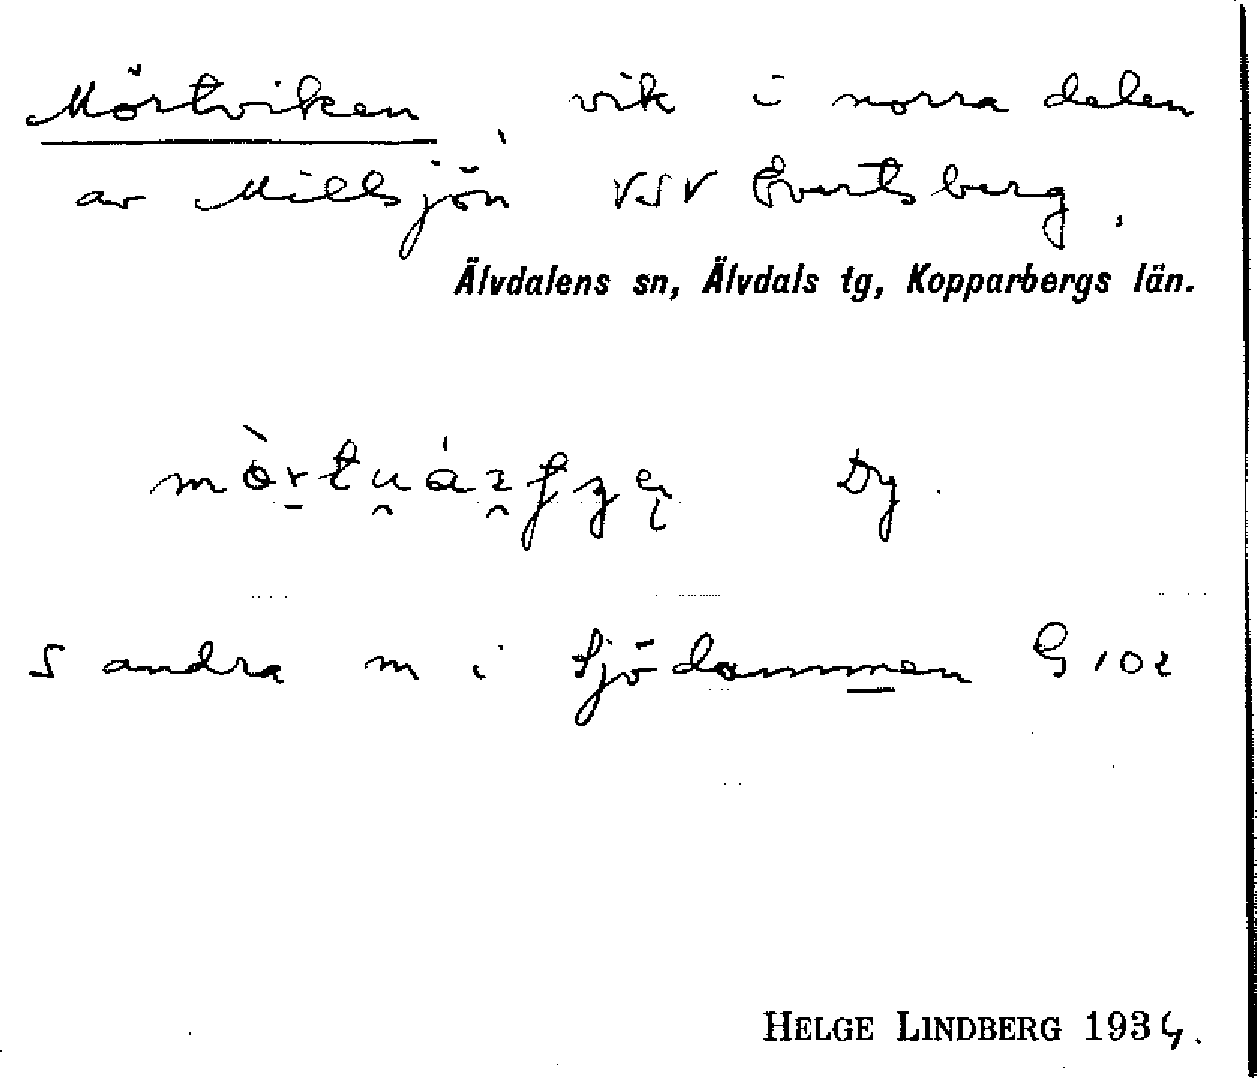 Mörtviken, vik i norra delen
av Millsjön VSV Evertsberg,
Älvdalens sn, Älvdals tg, Kopparbergs län.
Dg.
S andra m i Sjödammen G 102
HELGE LINDBERG 1934.